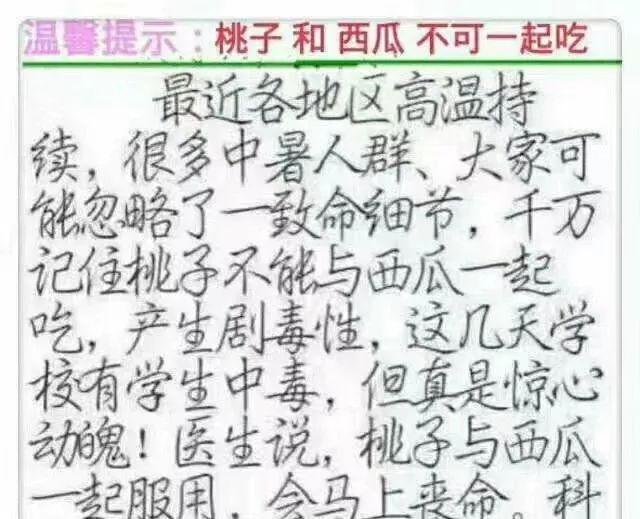 温馨提示：桃子 和 西瓜 不可一起吃
最近各地区高温持
续，很多中暑人群、大家可
能忽略了一致命细节，千万
记住桃子不能与西瓜一起
吃，产生剧毒性，这几天学
校有学生中毒，但真是惊心
动魄！医生说，桃子与西瓜
一起服用，会马上丧命。科